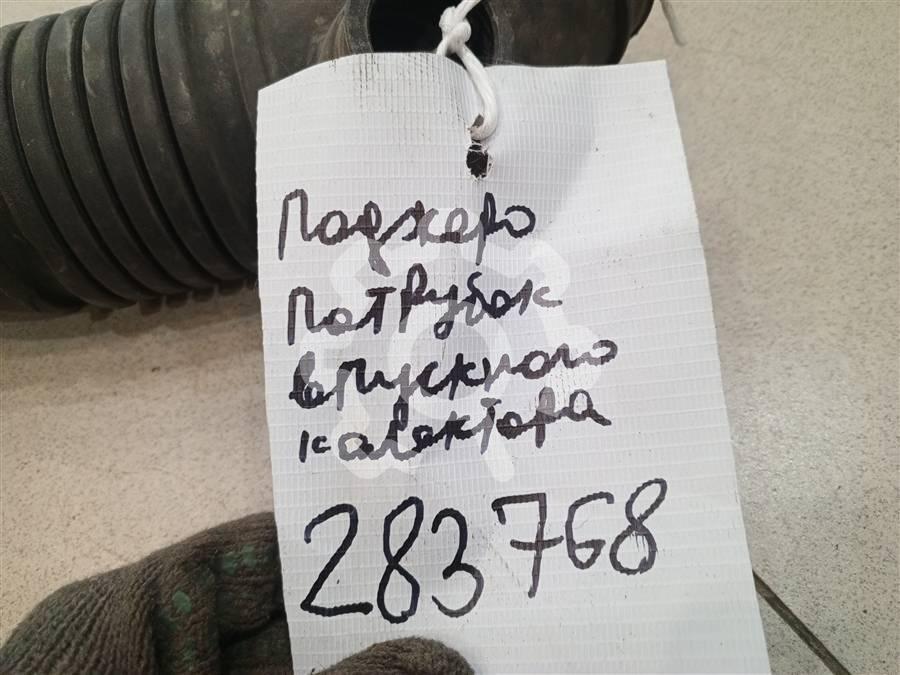 Паджеро
Патрубок
впускного
калектора
283768